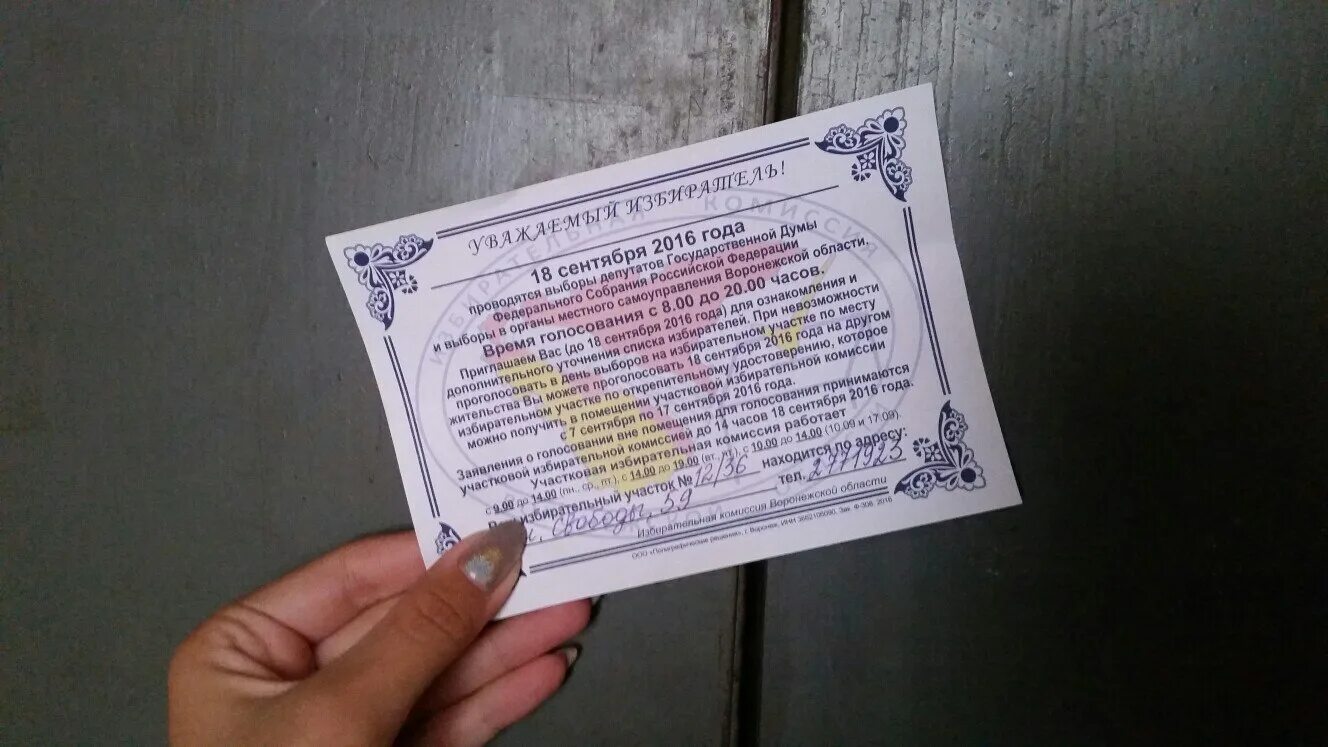 УВАЖАЕМЫЙ ИЗБИРАТЕЛЬ!
ИЗБИРАТЕЛЬНАЯ КОМИССИЯ
18 сентября 2016 года
проводятся выборы депутатов Государственной Думы
Федерального Собрания Российской Федерации
и выборы в органы местного самоуправления Воронежской области.
Время голосования с 8.00 до 20.00 часов.
Приглашаем Вас (до 18 сентября 2016 года) для ознакомления и
дополнительного уточнения списка избирателей. При невозможности
проголосовать в день выборов на избирательном участке по месту
жительства Вы можете проголосовать 18 сентября 2016 года на другом
избирательном участке по открепительному удостоверению, которое
можно получить в помещении участковой избирательной комиссии
с 7 сентября по 17 сентября 2016 года.
Заявления о голосовании вне помещения для голосования принимаются
участковой избирательной комиссией до 14 часов 18 сентября 2016 года.
Участковая избирательная комиссия работает
с 9.00 до 14.00 (пн., ср., пт.), с 14.00 до 19.00 (вт., чт.), с 10.00 до 14.00 (10.09 и 17.09).
избирательный участок № 12/36 находится по адресу:
Свободы, 59 тел. 2771923
Избирательная комиссия Воронежской области
ООО «Полиграфические решения», г. Воронеж, ИНН 2016